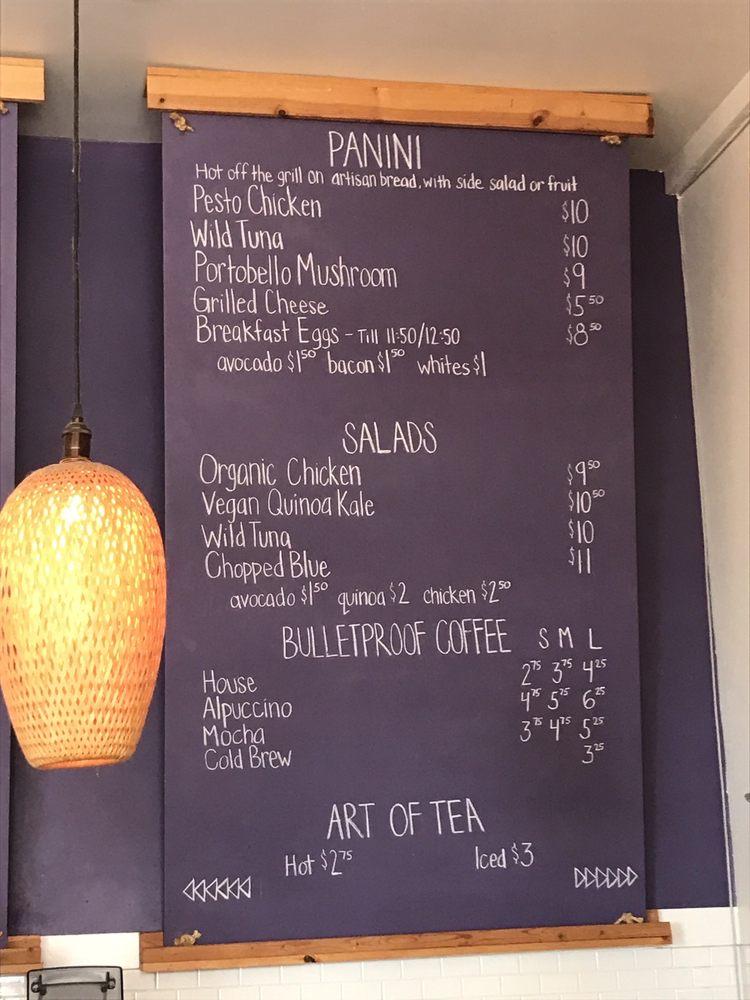 PANINI
Hot off the grill on artisan bread, with side salad or fruit
Pesto Chicken $10
Wild Tuna $10
Portobello Mushroom $9
Grilled Cheese $5⁵⁰
Breakfast Eggs - Till 11:50/12:50 $8⁵⁰
avocado $1⁵⁰ bacon $1⁵⁰ whites $1
SALADS
Organic Chicken $9⁵⁰
Vegan Quinoa Kale $10⁵⁰
Wild Tuna $10
Chopped Blue $11
avocado $1⁵⁰ quinoa $2 chicken $2⁵⁰
BULLETPROOF COFFEE S M L
House 2⁷⁵ 3⁷⁵ 4²⁵
Alpuccino 4⁷⁵ 5⁷⁵ 6²⁵
Mocha 3⁷⁵ 4⁷⁵ 5²⁵
Cold Brew 3²⁵
ART OF TEA
Hot $2⁷⁵ Iced $3